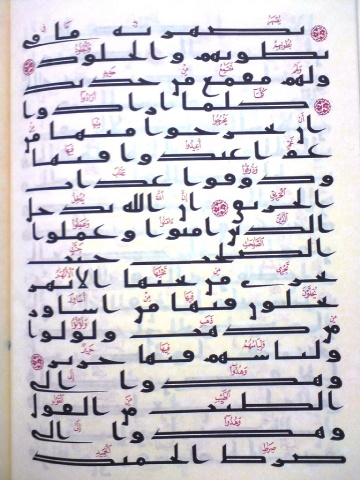 يصهر به ما في
بطونهم والجلود
ولهم مقمع من حديد
كلما ارادوا
ان يخرجوا منها من
غم اعيدوا فيها
وذوقوا عذاب
الحريق ان الله يدخل
الذين امنوا وعملوا
الصلحت جنت
تجري من تحتها الانهر
يحلون فيها من اساور
من ذهب ولولوا
ولباسهم فيها حرير
وهدوا الى
الطيب من القول
وهدوا الى
صرط الحميد